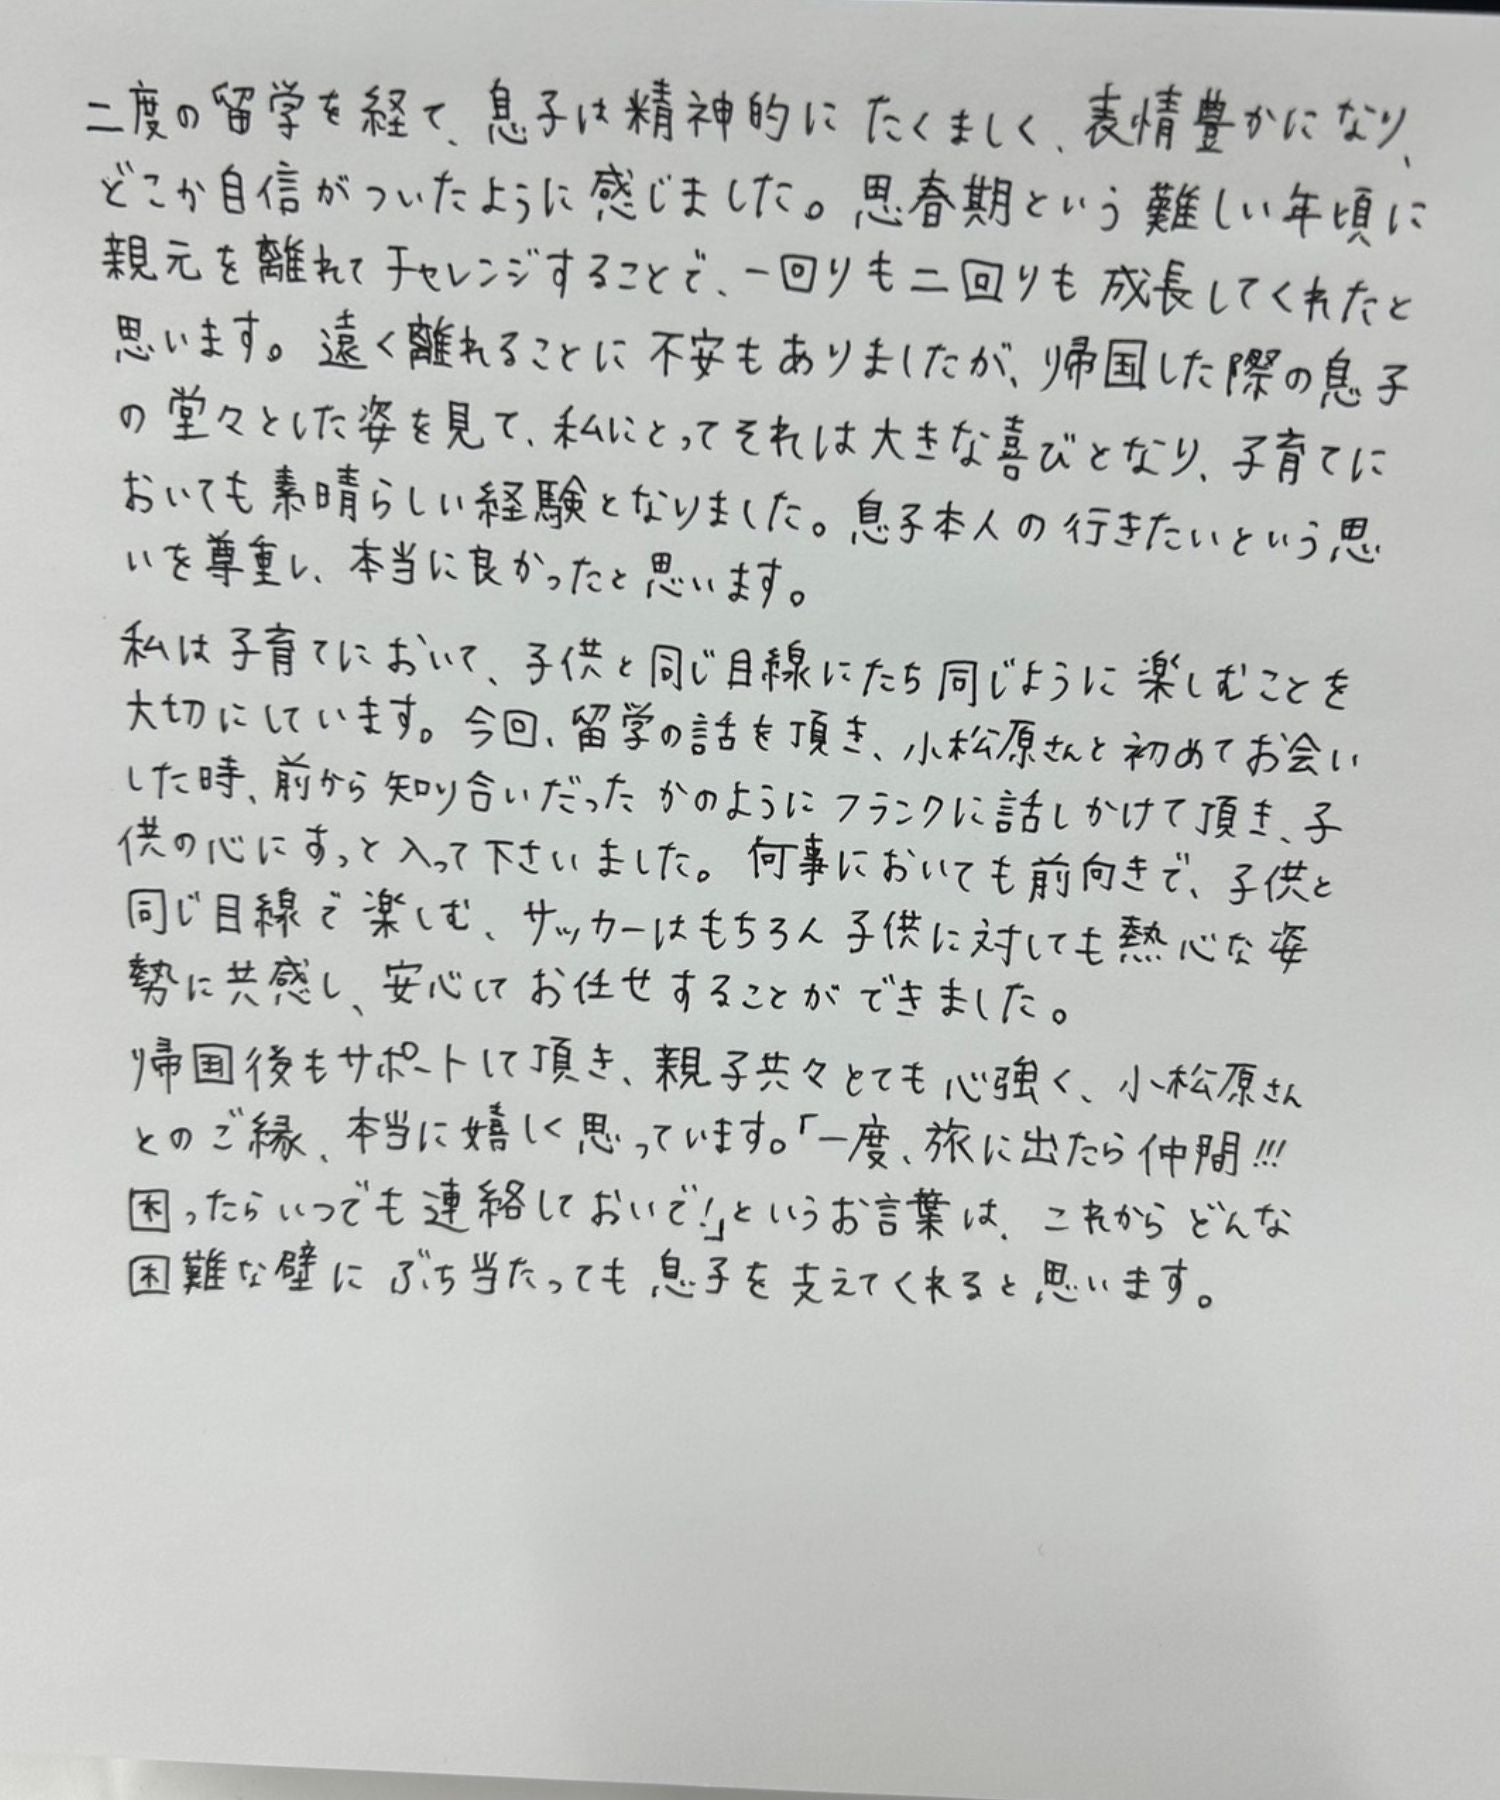 二度の留学を経て、息子は精神的にたくましく、表情豊かになり、
どこか自信がついたように感じました。思春期という難しい年頃に
親元を離れてチャレンジすることで、一回りも二回りも成長してくれたと
思います。遠く離れることに不安もありましたが、帰国した際の息子
の堂々とした姿を見て、私にとってそれは大きな喜びとなり、子育てに
おいても素晴らしい経験となりました。息子本人の行きたいという思
いを尊重し、本当に良かったと思います。
私は子育てにおいて、子供と同じ目線にたち同じように楽しむことを
大切にしています。今回、留学の話を頂き、小松原さんと初めてお会い
した時、前から知り合いだったかのようにフランクに話しかけて頂き、子
供の心にすっと入って下さいました。何事においても前向きで、子供と
同じ目線で楽しむ、サッカーはもちろん子供に対しても熱心な姿
勢に共感し、安心してお任せすることができました。
帰国後もサポートして頂き、親子共々とても心強く、小松原さん
とのご縁、本当に嬉しく思っています。「一度、旅に出たら仲間!!!
困ったらいつでも連絡しておいで!」というお言葉は、これからどんな
困難な壁にぶち当たっても息子を支えてくれると思います。